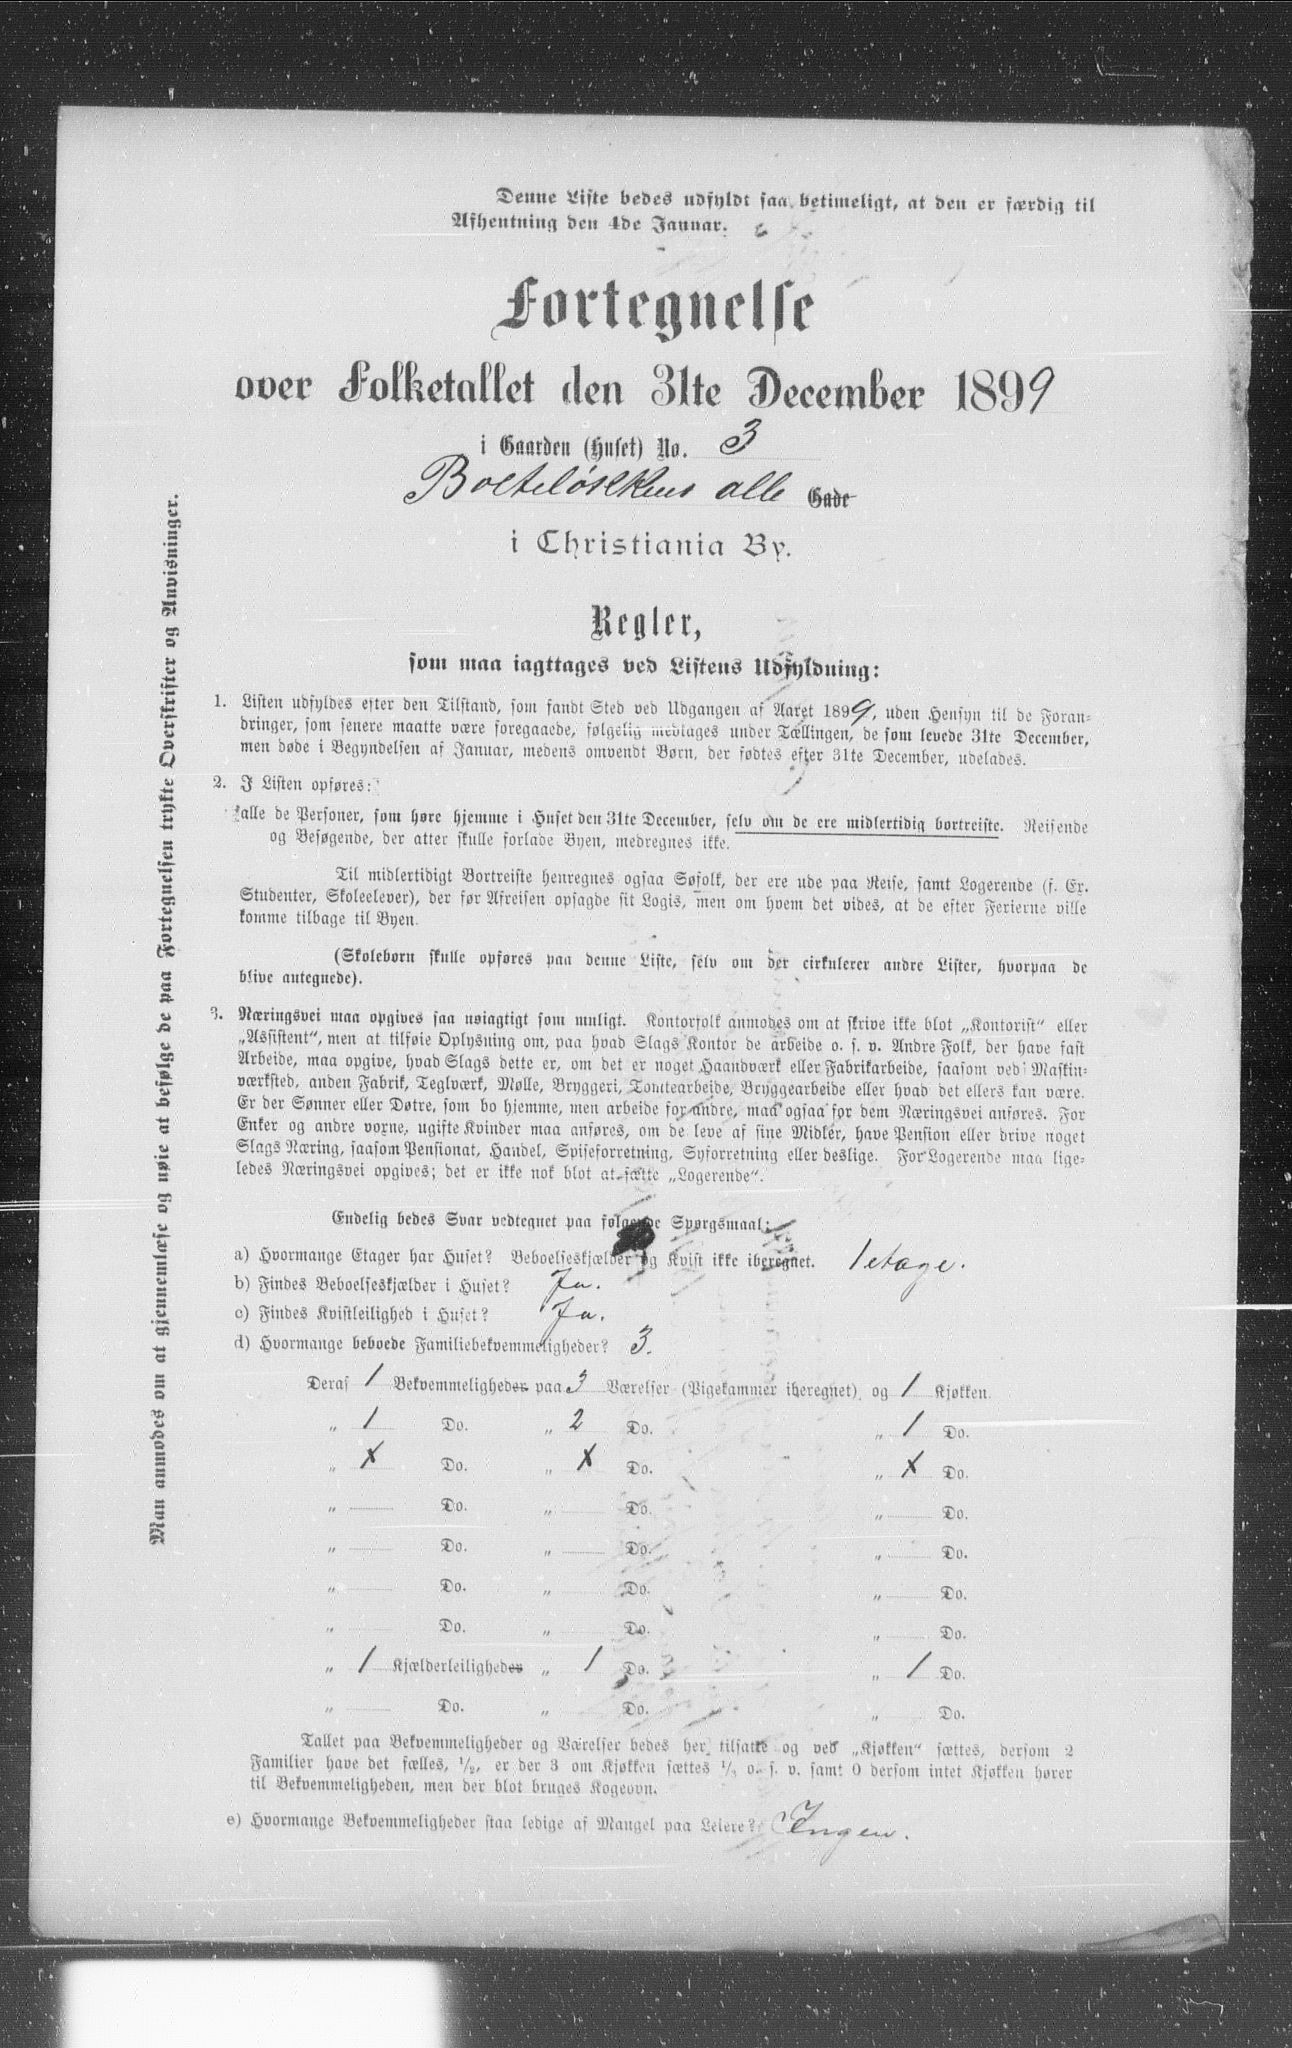 Denne Liste bedes udfyldt saa betimeligt, at den er færdig til
Afhentning den 4de Januar.
Fortegnelse
over Folketallet den 31te December 1899
i Gaarden (Huset) No. 3
Bolteløkkens alle Gade
i Christiania By.
Regler,
som maa iagttages ved Listens Udfyldning:
1. Listen udfyldes efter den Tilstand, som fandt Sted ved Udgangen af Aaret 1899, uden Hensyn til de Foran-
dringer, som senere maatte være foregaaede, følgelig medtages under Tællingen, de som levede 31te December,
men døde i Begyndelsen af Januar, medens omvendt Børn, der fødtes efter 31te December, udelades.
2. I Listen opføres:
alle de Personer, som høre hjemme i Huset den 31te December, selv om de ere midlertidig bortreiste. Reisende
og Besøgende, der atter skulle forlade Byen, medregnes ikke.
Til midlertidigt Bortreiste henregnes ogsaa Søfolk, der ere ude paa Reise, samt Logerende (f. Ex.
Studenter, Skoleelever), der før Afreisen opsagde sit Logis, men om hvem det vides, at de efter Ferierne ville
komme tilbage til Byen.
(Skolebørn skulle opføres paa denne Liste, selv om der cirkulerer andre Lister, hvorpaa de
blive antegnede).
3. Næringsvei maa opgives saa nøiagtigt som muligt. Kontorfolk anmodes om at skrive ikke blot „Kontorist“ eller
„Assistent“, men at tilføie Oplysning om, paa hvad Slags Kontor de arbeide o. s. v. Andre Folk, der have fast
Arbeide, maa opgive, hvad Slags dette er, om det er noget Haandværk eller Fabrikarbeide, saasom ved Maskin-
værksted, anden Fabrik, Teglværk, Mølle, Bryggeri, Tomtearbeide, Bryggearbeide eller hvad det ellers kan være.
Er der Sønner eller Døtre, som bo hjemme, men arbeide for andre, maa ogsaa for dem Næringsvei anføres. For
Enker og andre voxne, ugifte Kvinder maa anføres, om de leve af sine Midler, have Pension eller drive noget
Slags Næring, saasom Pensionat, Handel, Spiseforretning, Syforretning eller deslige. For Logerende maa lige-
ledes Næringsvei opgives; det er ikke nok blot at sætte „Logerende“.
Endelig bedes Svar vedtegnet paa følgende Spørgsmaal:
a) Hvormange Etager har Huset? Beboelseskjælder og Kvist ikke iberegnet. 1 etage.
b) Findes Beboelseskjælder i Huset? Ja.
c) Findes Kvistleilighed i Huset? Ja.
d) Hvormange beboede Familiebekvemmeligheder? 3.
Deraf 1 Bekvemmeligheder paa 3 Værelser (Pigekammer iberegnet) og 1 Kjøkken.
„ 1 Do. „ 2 Do. „ 1 Do.
„ X Do. „ X Do. „ X Do.
„ Do. „ Do. „ Do.
„ Do. „ Do. „ Do.
„ Do. „ Do. „ Do.
„ Do. „ Do. „ Do.
„ 1 Kjælderleiligheder „ 1 Do. „ 1 Do.
„ Do. „ Do. „ Do.
Tallet paa Bekvemmeligheder og Værelser bedes her tilsatte og ved „Kjøkken“ sættes, dersom 2
Familier have det fælles, 1/2, er der 3 om Kjøkken sættes 1/3 o. s. v. samt 0 dersom intet Kjøkken hører
til Bekvemmeligheden, men der blot bruges Kogeovn.
e) Hvormange Bekvemmeligheder staa ledige af Mangel paa Leiere? Ingen.
Man anmodes om at gjennemlæse og nøie at befølge de paa Fortegnelsen trykte Overskrifter og Anvisninger.